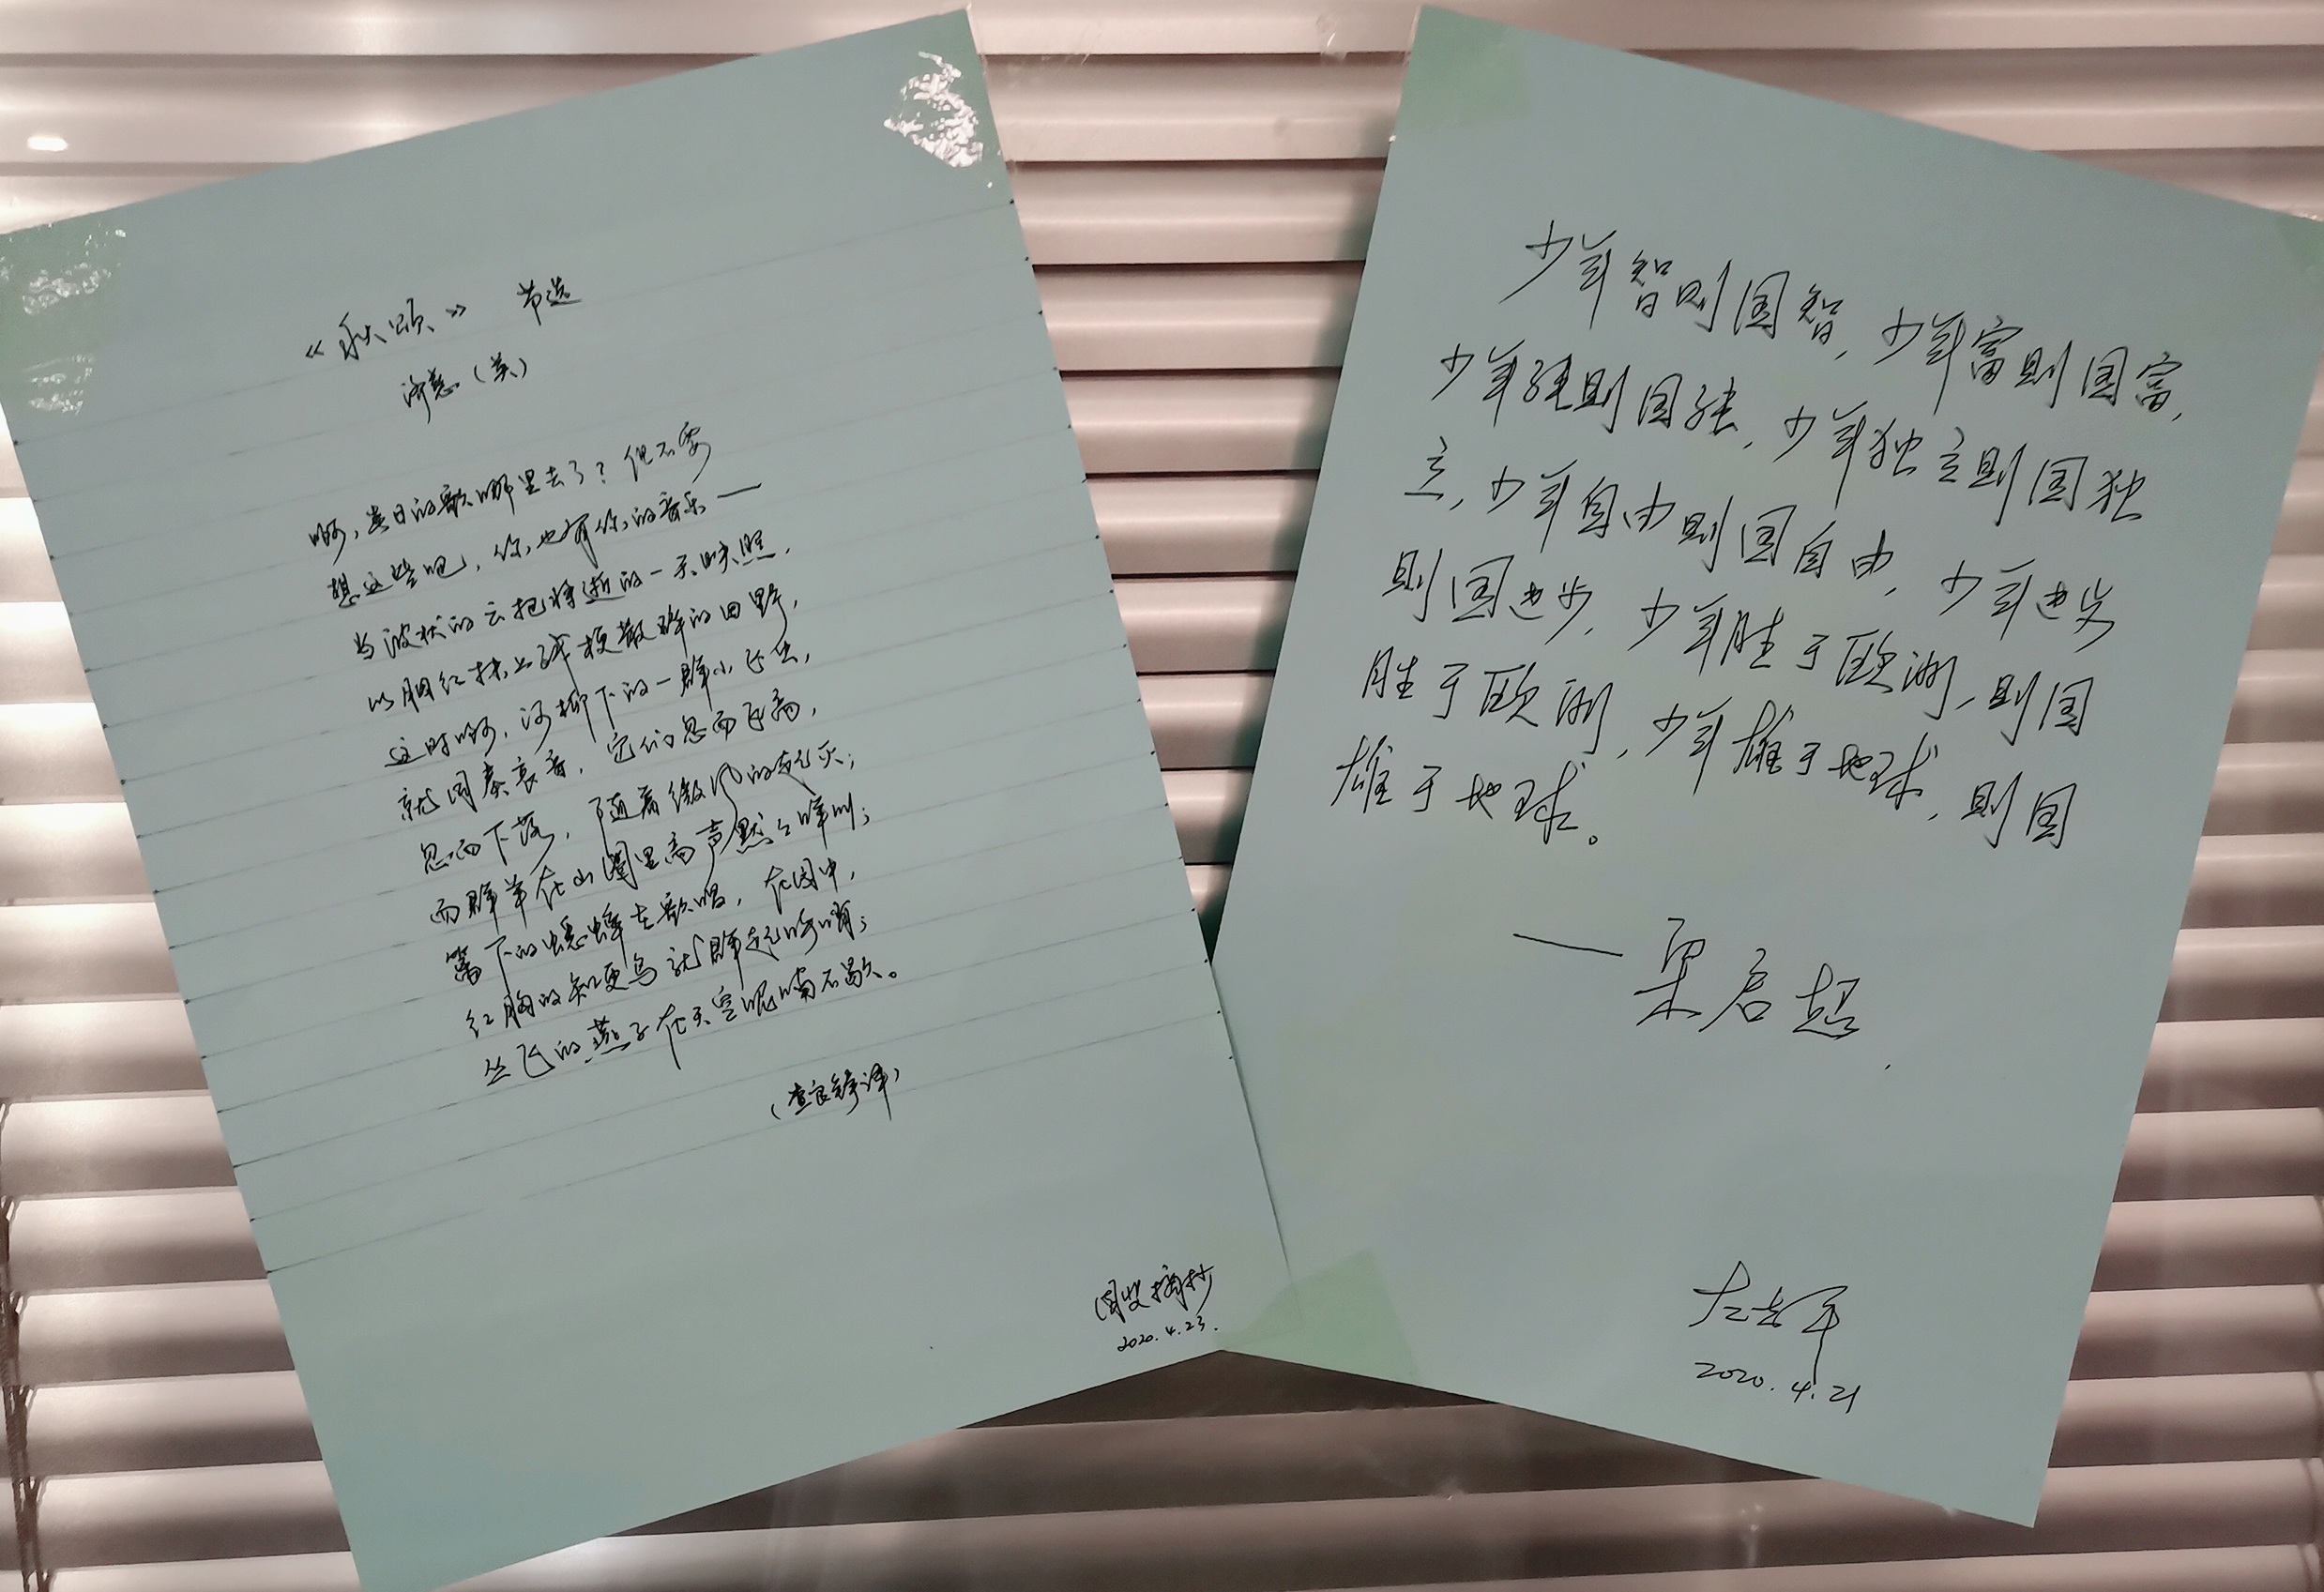 《秋颂》 节选
济慈（英）
啊，春日的歌哪里去了？但不要
想这些吧，你也有你的音乐——
当波状的云把将逝的一天映照，
以胭红抹上残梗散碎的田野，
这时啊，河柳下的一群小飞虫，
就同奏哀音，它们忽而飞高，
忽而下落，随着微风的起灭；
而群羊在山圈里高声默默咩叫；
篱下的蟋蟀在歌唱，在园中，
红胸的知更鸟就群起呼哨；
丛飞的燕子在天空呢喃不歇。
（查良铮译）
摘抄
2020.4.23.
少年智则国智，少年富则国富，
少年强则国强，少年独立则国独
立，少年自由则国自由，少年进步
则国进步，少年胜于欧洲，则国
胜于欧洲，少年雄于地球，则国
雄于地球。
——梁启超
2020.4.21